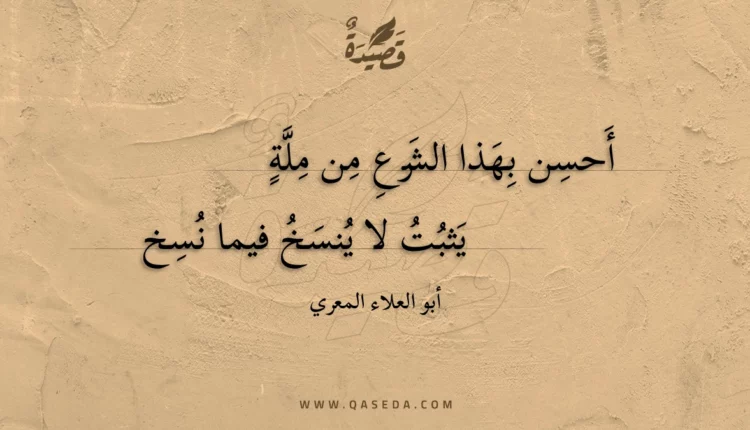 قَصِيدَةٌ
أَحسِن بِهَذا الشَرعِ مِن مِلَّةٍ
يَثبُتُ لا يُنسَخُ فيما نُسِخ
أبو العلاء المعري
WWW.QASEDA.COM